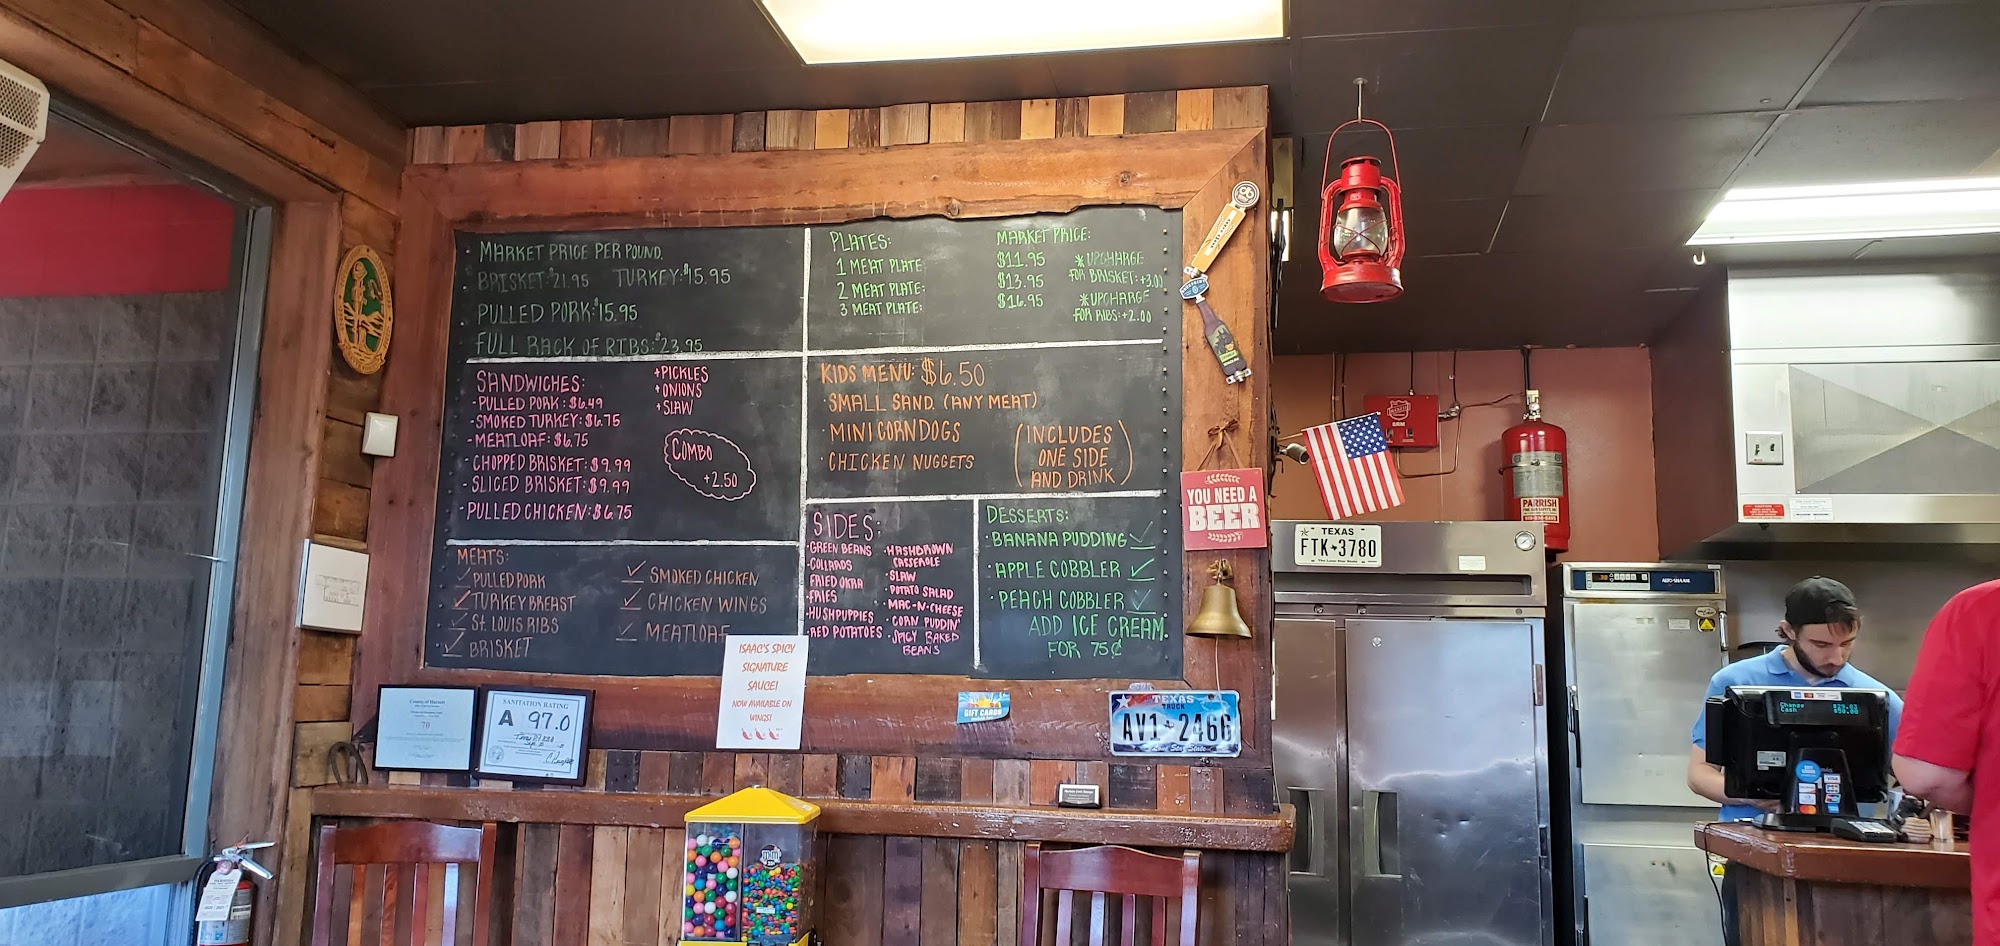 MARKET PRICE PER POUND.
BRISKET: $21.95 TURKEY: $15.95
PULLED PORK: $15.95
FULL RACK OF RIBS: $23.95
SANDWICHES:
- PULLED PORK: $6.49
- SMOKED TURKEY: $6.75
- MEATLOAF: $6.75
- CHOPPED BRISKET: $9.99
- SLICED BRISKET: $9.99
- PULLED CHICKEN: $6.75
+PICKLES
+ONIONS
+SLAW
COMBO
+2.50
MEATS:
PULLED PORK
TURKEY BREAST
ST. LOUIS RIBS
BRISKET
SMOKED CHICKEN
CHICKEN WINGS
MEATLOAF
PLATES:
1 MEAT PLATE
2 MEAT PLATE:
3 MEAT PLATE:
MARKET PRICE:
$11.95
$13.95
$16.95
*UPCHARGE
FOR BRISKET: +3.00
*UPCHARGE
FOR RIBS: +2.00
KIDS MENU: $6.50
· SMALL SAND. (ANY MEAT)
· MINI CORNDOGS
· CHICKEN NUGGETS
(INCLUDES
ONE SIDE
AND DRINK)
SIDES:
· GREEN BEANS
· COLLARDS
· FRIED OKRA
· FRIES
· HUSHPUPPIES
· RED POTATOES
· HASHBROWN
CASSEROLE
· SLAW
· POTATO SALAD
· MAC-N-CHEESE
· CORN PUDDIN'
· SPICY BAKED
BEANS
DESSERTS:
· BANANA PUDDING
· APPLE COBBLER
· PEACH COBBLER
ADD ICE CREAM
FOR 75¢
ISAAC'S SPICY
SIGNATURE
SAUCE!
NOW AVAILABLE ON
WINGS!
SANITATION RATING
A 97.0
GIFT CARDS
TEXAS
TRUCK
AV1 2466
Lone Star State
YOU NEED A
BEER
TEXAS
FTK 3780
PARRISH
Change $29.03
Cash $50.00
VISA